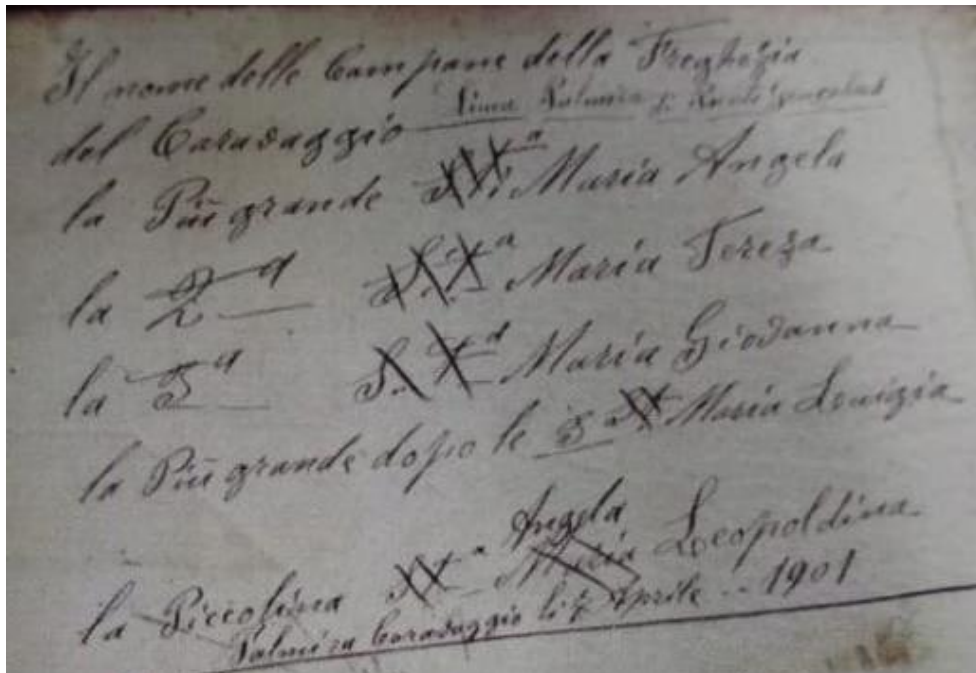 Il nome delle Campane della Freghezia
del Caravaggio Linea Palmira
la Piu grande Maria Angela
la 2a Maria Tereza
la 3a S. Maria Giovanna
la Piu grande dopo le 3a Maria Louigia
Angela
la Piccolina Maria Leopoldina
Palmira Caravaggio li Aprile 1901